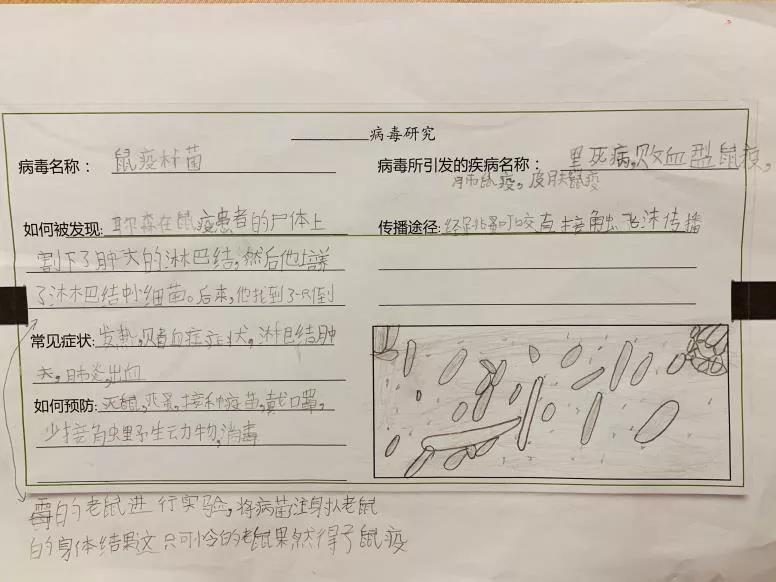 病毒研究
病毒名称： 鼠疫杆菌
病毒所引发的疾病名称： 黑死病，败血型鼠疫，
肺鼠疫，皮肤鼠疫
如何被发现: 耶尔森在鼠疫患者的尸体上
割下了肿大的淋巴结，然后他培养
了淋巴结中细菌。后来，他找到了一只倒
传播途径: 经跳蚤叮咬 直接触 飞沫传播
常见症状: 发热，败血症症状，淋巴结肿
大，肺炎，出血
如何预防: 灭鼠，灭蚤，接种疫苗，戴口罩，
少接触野生动物，消毒
霉的老鼠进行实验，将病菌注射从老鼠
的身体结果这只可怜的老鼠果然得了鼠疫